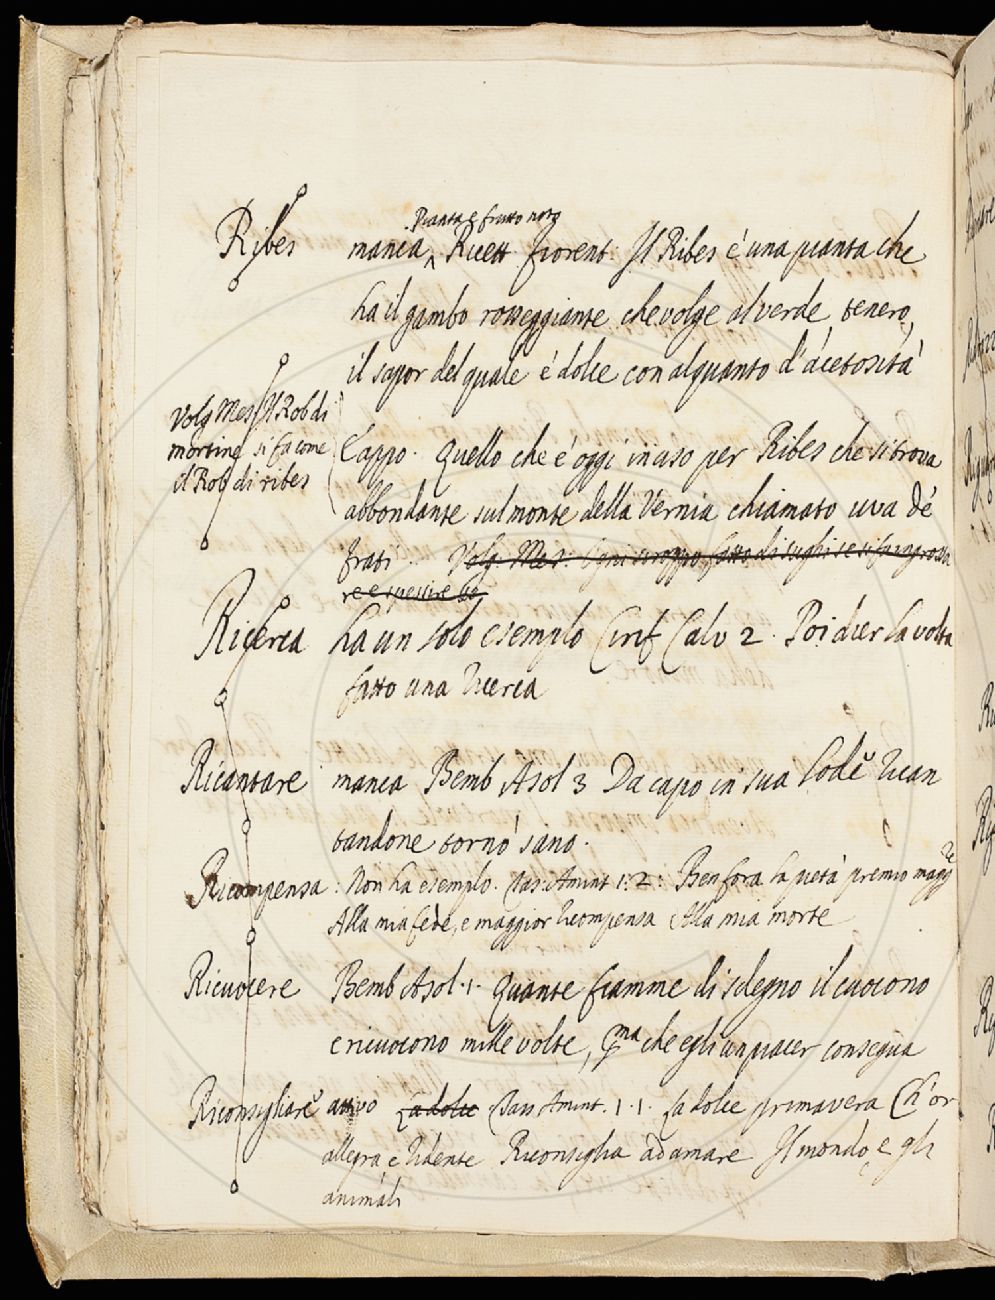 Pianta e frutto noto
Ribes manca, Ricett fiorent Il Ribes é una pianta che
ha il gambo rosseggiante che volge al verde, tenero,
il sapor del quale é dolce con alquanto d'acetosità
Volg Mes Il Rob di
mortine si fa come
il Rob di ribes
L'appo. Quello che é oggi in uso per Ribes che si trova
abbondante sul monte della Vernia chiamato uva de'
frati. Volg. Mes. Ogni siroppo fatto di sughi se si fa ingrossa
re e spessire
Ricerca ha un solo esempio Cirif Calv 2. Poi dier la volta
fatto una ricerca
Ricantare manca Bemb Asol 3 Da capo in sua lode rican
tandone tornò sano.
Ricompensa. Non ha esempio. Tas. Amint 1:2: Ben fora la pietà premio magg re
Alla mia fede, e maggior ricompensa Alla mia morte
Ricuocere Bemb Asol. 1. Quante fiamme di sdegno il cuocono
e ricuocono mille volte, pma che egli un piacer consegua
Riconsigliare attivo La dolce Tass Amint. 1. 1. La dolce primavera Ch'or
allegra e ridente Riconsiglia ad amare Il mondo, e gli
animali